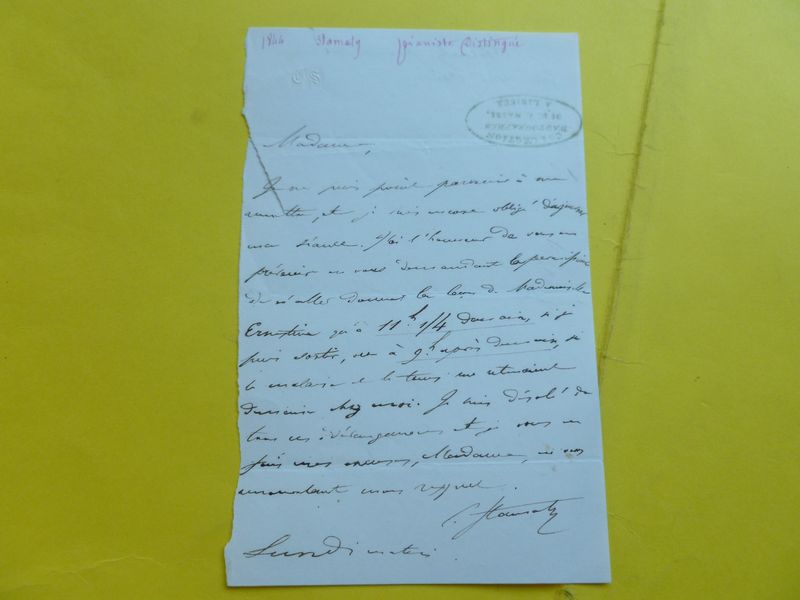 1844 Stamaty pianiste Distingué
CS
COLLECTION
D'AUTOGRAPHES
A LISIEUX
Madame,
Je ne puis point parvenir à me
remettre, et je suis encore obligé d'ajourner
ma séance. J'ai l'honneur de vous en
prévenir en vous demandant la permission
de n'aller donner la leçon de Mademoiselle
Ernestine qu'à 11h 1/4 demain, si je
puis sortir, ou à 9h après demain, si
le malaise et le tems me retenaient
demain chez moi. Je suis désolé de
tous ces dérangemens et je vous en
fais mes excuses, Madame, en vous
renouvelant mon respect.
C. Stamaty
Lundi matin.